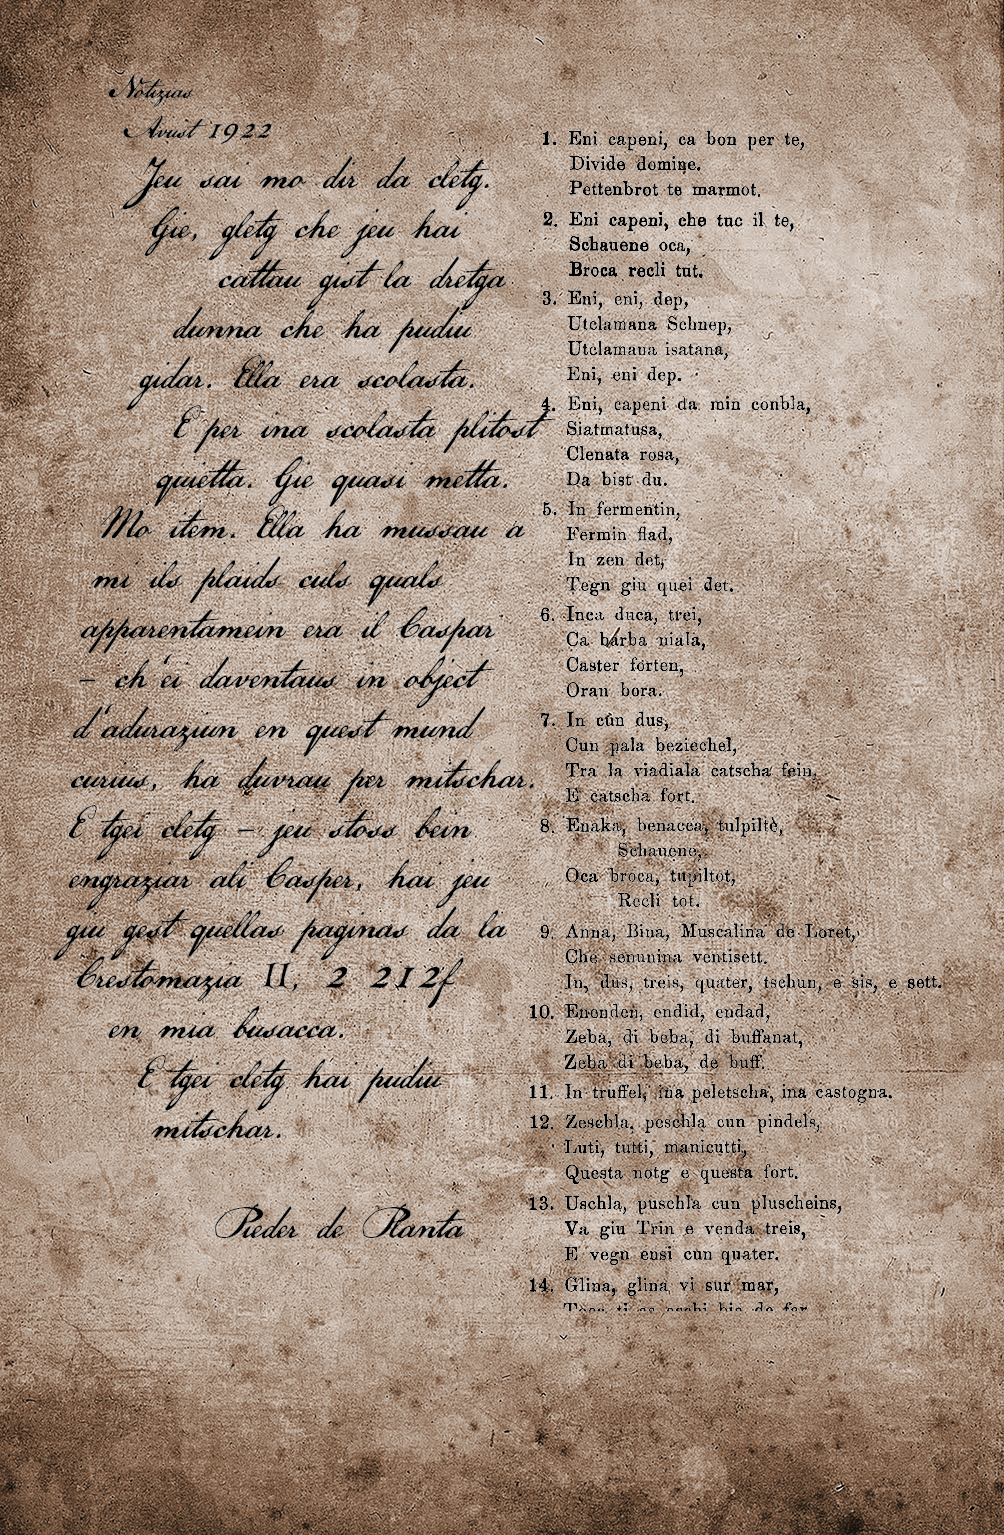 Notizias
Avust 1922
Jeu sai mo dir da cletg.
Gie, gletg che jeu hai
cattau gist la dretga
dunna che ha pudiu
gidar. Ella era scolasta.
E per ina scolasta plitost
quietta. Gie quasi metta.
Mo item. Ella ha mussau a
mi ils plaids culs quals
apparentamein era il Caspar
– ch'ei daventaus in object
d'aduraziun en quest mund
curius, ha duvrau per mitschar.
E tgei cletg – jeu stoss bein
engraziar ali Casper, hai jeu
giu gest quellas paginas da la
Crestomazia II, 2 212f
en mia busacca.
E tgei cletg hai pudiu
mitschar.
Pieder de Planta
1. Eni capeni, ca bon per te,
Divide domine.
Pettenbrot te marmot.
2. Eni capeni, che tuc il te,
Schauene oca,
Broca recli tut.
3. Eni, eni, dep,
Utclamana Schnep,
Utclamana isatana,
Eni, eni dep.
4. Eni, capeni da min conbla,
Siatmatusa,
Clenata rosa,
Da bist du.
5. In fermentin,
Fermin flad,
In zen det,
Tegn giu quei det.
6. Inca duca, trei,
Ca barba niala,
Caster forten,
Oran bora.
7. In cün dus,
Cun pala beziechel,
Tra la viadiala catscha fein,
E catscha fort.
8. Enaka, benacca, tulpiltè,
Schauene,
Oca broca, tupiltot,
Recli tot.
9. Anna, Bina, Muscalina de Loret,
Che senunina ventisett.
In, dus, treis, quater, tschun, e sis, e sett.
10. Enonden, endid, endad,
Zeba, di beba, di buffanat,
Zeba di beba, de buff.
11. In truffel, ina peletscha, ina castogna.
12. Zeschla, peschla cun pindels,
Luti, tutti, manicutti,
Questa notg e questa fort.
13. Uschla, puschla cun pluscheins,
Va giu Trin e venda treis,
E vegn eusi cun quater.
14. Glina, glina vi sur mar,